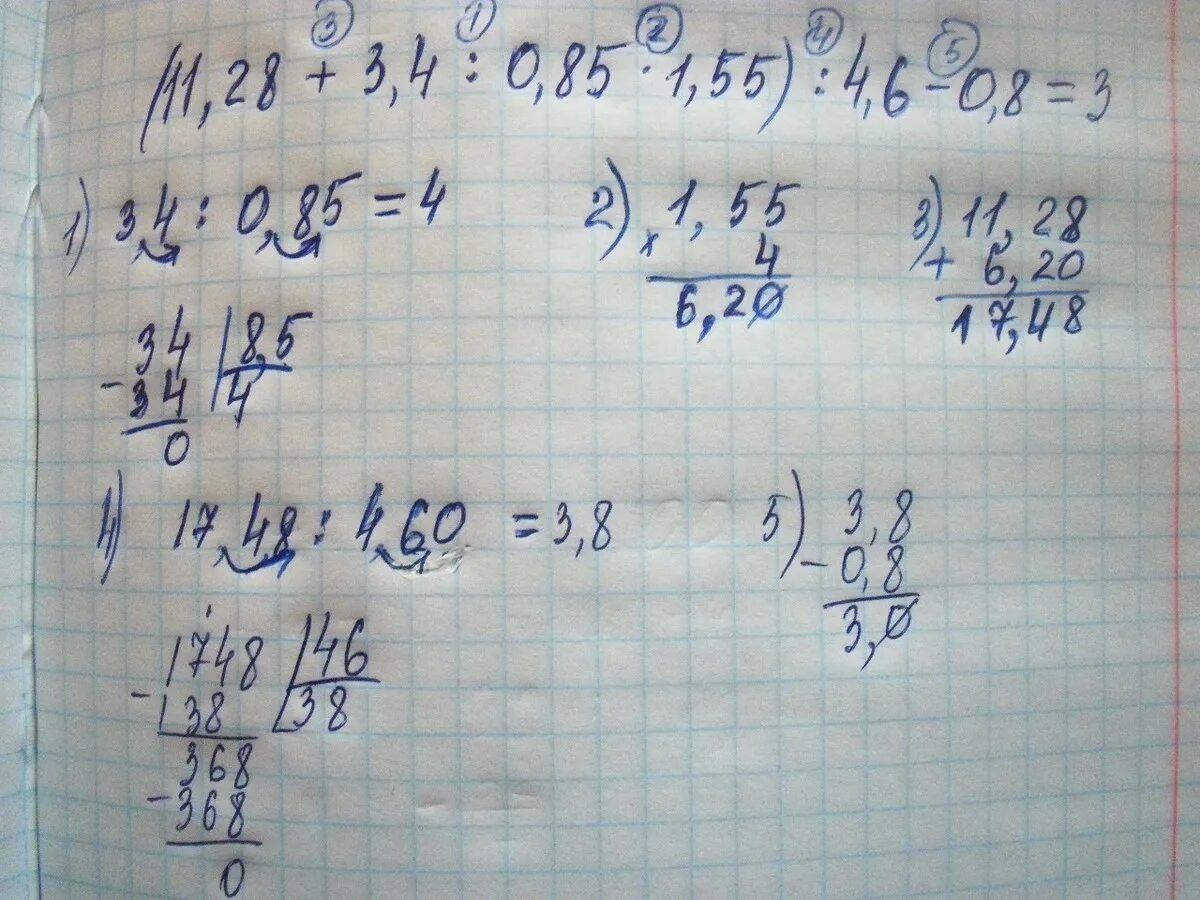 3 1 2 4 5
(11,28 + 3,4 : 0,85 · 1,55) : 4,6 - 0,8 = 3
1) 3,4 : 0,85 = 4
34 | 8,5
- 34 | 4
0
2) 1,55
× 4
6,20
3) 11,28
+ 6,20
17,48
4) 17,48 : 4,60 = 3,8
1748 | 46
- 138 | 38
368
- 368
0
5) 3,8
- 0,8
3,0